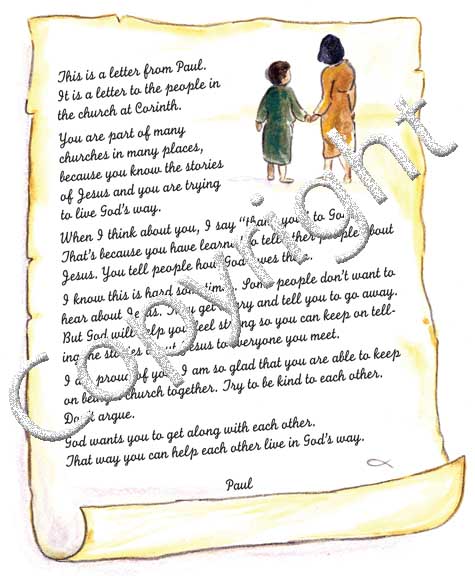 This is a letter from Paul.
It is a letter to the people in
the church at Corinth.
You are part of many
churches in many places,
because you know the stories
of Jesus and you are trying
to live God's way.
When I think about you, I say "thank you" to God.
That's because you have learned to tell other people about
Jesus. You tell people how God loves them.
I know this is hard sometimes. Some people don't want to
hear about Jesus. They get angry and tell you to go away.
But God will help you feel strong so you can keep on tell-
ing the stories about Jesus to everyone you meet.
I am proud of you. I am so glad that you are able to keep
on being a church together. Try to be kind to each other.
Don't argue.
God wants you to get along with each other.
That way you can help each other live in God's way.
Paul
Copyright